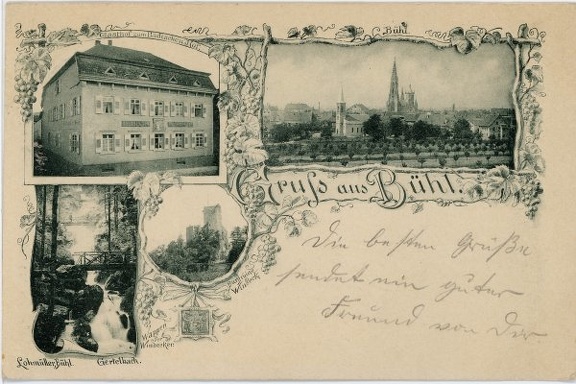 Gasthof zum Badischen Hof
Bühl.
Gruss aus Bühl.
Die besten Grüße
sendet ein guter
Freund von Dir
Windeck
Wappen
Windecker
Lohmüller, Bühl
Gertelbach.